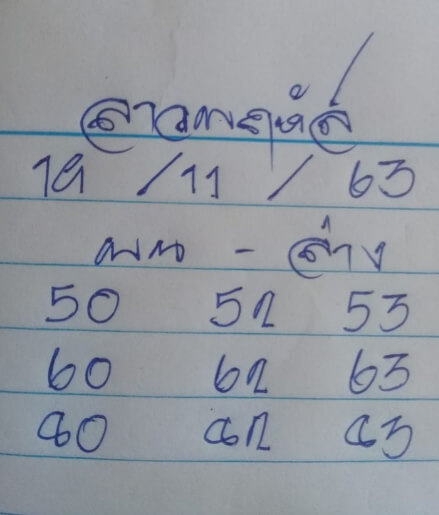 ลาวพฤหัส
19 / 11 / 63
บน - ล่าง
50 52 53
60 62 63
80 82 83